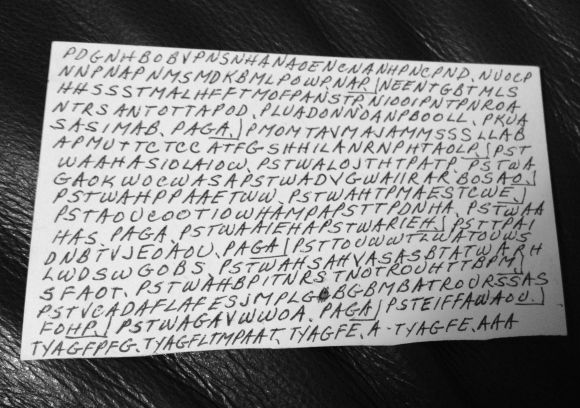 PDGNHBOBVPNSNHANAOENCNANHPNCPND, NUOCP
NNPNAPNMSMDKBMLPOWP,NAP, NEENTGBTMLS
HHSSSTMALHFFTMOFPANSTPNIOOIPNTPNROA
NTRSANTOTTAPOD, PLUADONNOANPBOOLL, PKUA
SASIMAB, PAGA, PMOMTAVMAJAMMSSSLLAB
APMUTTCTCCATFGSHHILANRNPHTAOLP, PST
WAAHASIOLAIOW, PSTWALOJTHTPATP, PSTWA
GAOKWOCWASAPSTWADVGWAIIRAR, BOSAO,
PSTWAHPPAAETWW, PSTWAHTPMAESTCWE,
PSTAOUCOOTIOWHAMPAPSTTPDNHA, PSTWAA
HAS, PAGA, PSTWAAIEHAPSTWARIEH, PSTTPAI
DNBTVJEOAOU, PAGA, PSTTOUWWTLWATOUWS
LWDSWGOBS, PSTWAHSAHVASASBTATWARH
SFAOT, PSTWAHBPITNRSTNOTROUHTTBPM,
PSTVCADAFLAFESJMPLG BGBMBATROURSSAS
FOHP, PSTWAGAVWWOA, PAGA, PSTEIFFAWAOU,
TYAGFPFG, TYAGFLTMPAAT, TYAGFE, A-TYAGFE, AAA